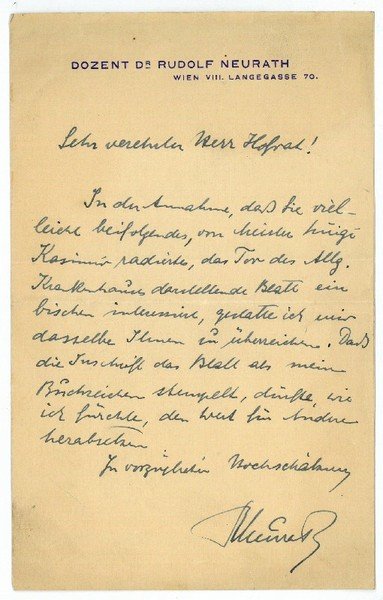 DOZENT DR RUDOLF NEURATH
WIEN VIII. LANGEGASSE 70.
Sehr verehrter Herr Hofrat!
In der Annahme, daß Sie viel-
leicht beifolgendes, von Meister Luigi
Kasimir radierte, das Tor des Allg.
Krankenhauses darstellende Blatt ein
bischen interessiere, gestatte ich mir
dasselbe Ihnen zu überreichen. Daß
die Inschrift das Blatt als mein
Buchzeichen stempelt, dürfte, wie
ich fürchte, den Wert für Andere
herabsetzen
In vorzüglicher Hochschätzung
RNeurath